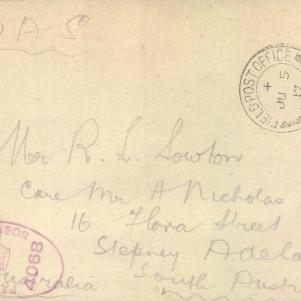 O A S
FIELD POST OFFICE
JU 5
17
Mer R. L. Sowton
Care Mr A Nicholas
16 Flora Street
Stepney Adela
South Austr
4068